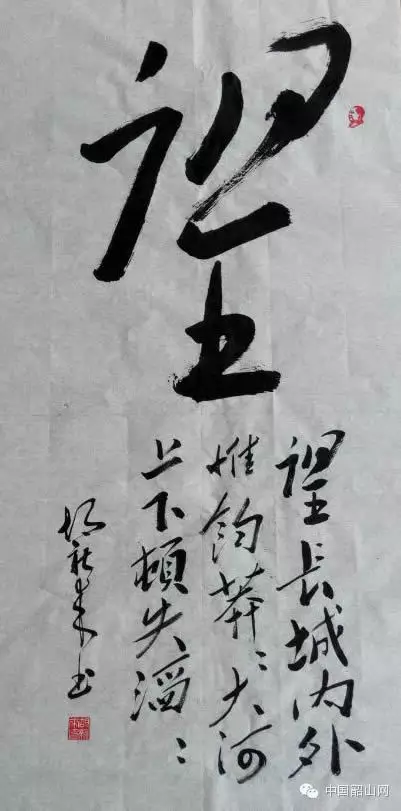 望
望長城内外
惟馀莽〻大河
上下頓失滔〻
书
中国韶山网